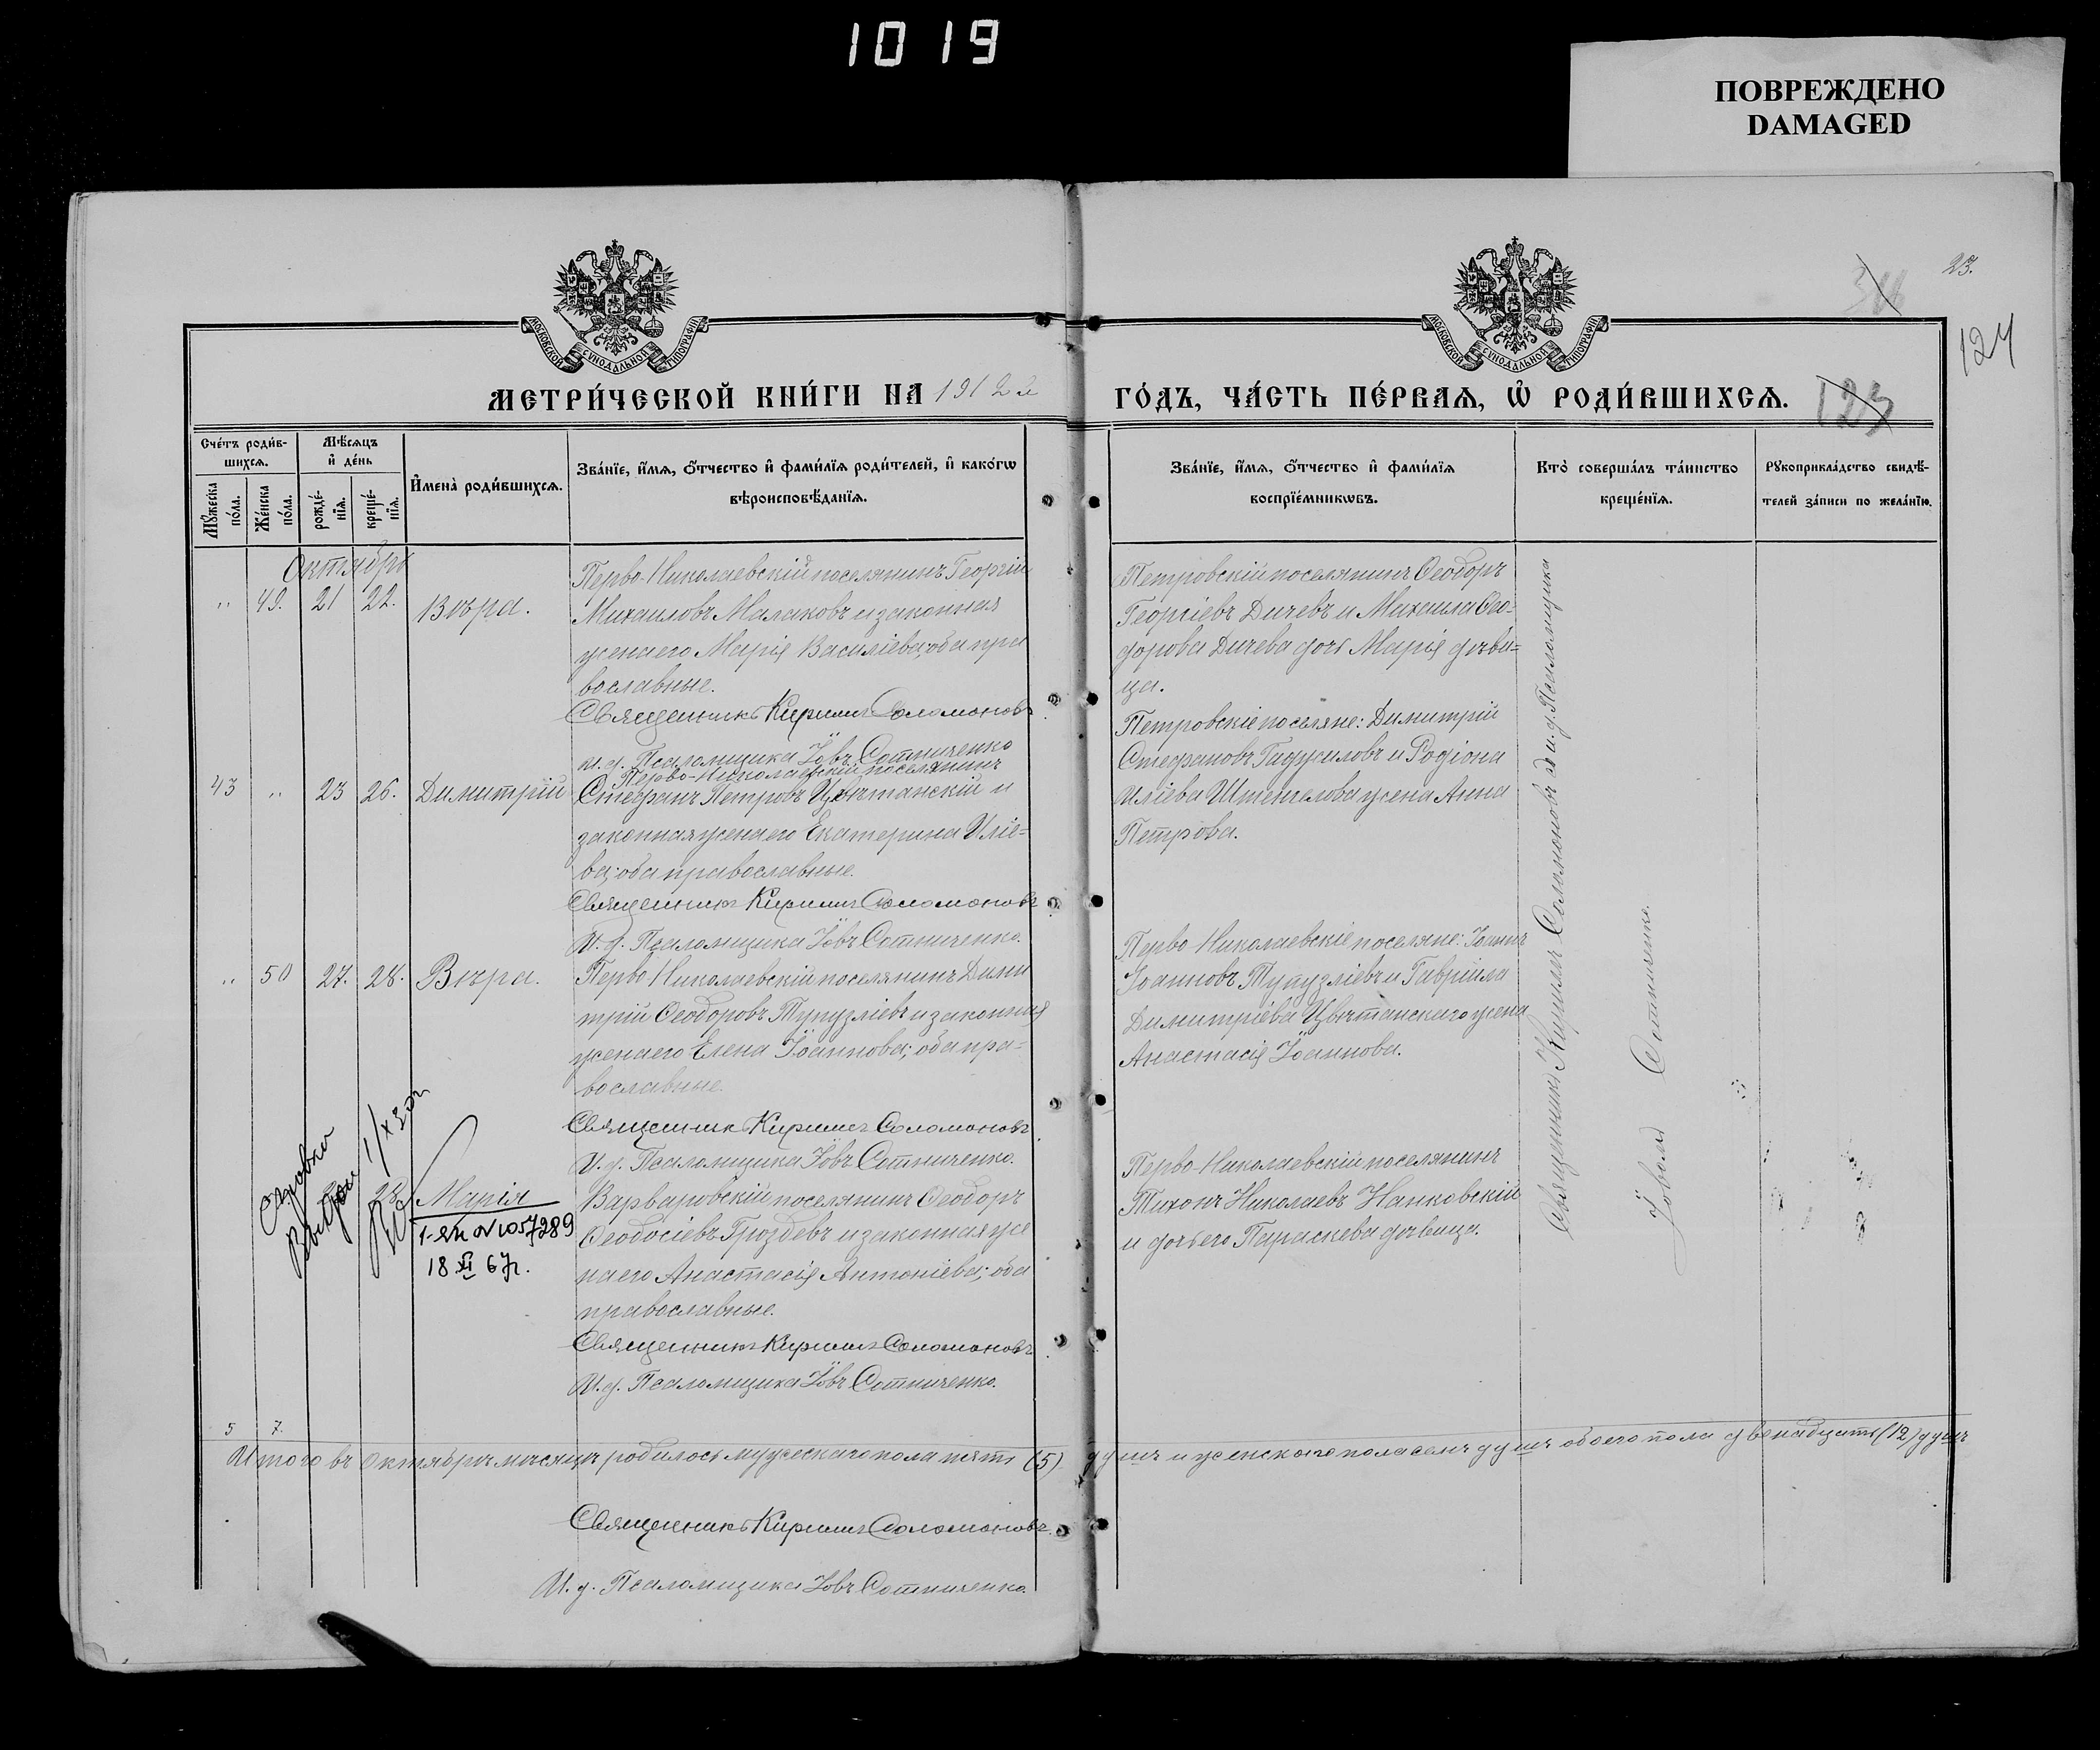 1019
ПОВРЕЖДЕНО
DAMAGED
23.
124
123
МОСКОВСКОЙ СУНОДАЛЬНОЙ ТИПОГРАФІИ
МОСКОВСКОЙ СУНОДАЛЬНОЙ ТИПОГРАФІИ
МЕТРИ́ЧЕСКОЙ КНИ́ГИ НА 1912й
ГО́ДЪ, ЧА́СТЬ ПЕ́РВАѦ, Ѡ҆ РОДИ́ВШИХСѦ.
Сче́тъ роди́в-
шихсѧ.
Мꙋ́жеска по́ла.
Же́нска по́ла.
Мѣ́сѧцъ
и҆ де́нь
рожде́-
нїѧ.
креще́-
нїѧ.
И҆мена̀ роди́вшихсѧ.
Зва́нїе, и҆́мѧ, ѻ҆́тчество и҆ фами́лїѧ роди́телей, и҆ како́гѡ
вѣроисповѣ́данїѧ.
Зва́нїе, и҆́мѧ, ѻ҆́тчество и҆ фами́лїѧ
воспрїе́мникѡвъ.
Кто̀ соверша́лъ та́инство
креще́нїѧ.
Рꙋкоприкла́дство свидѣ́-
телей за́писи по жела́нїю.
Октябрь
" 49. 21 22. Вѣра.
Перво-Николаевскій поселянинъ Георгій
Михаиловъ Малаковъ и законная
жена его Марія Василіева; оба пра
вославные.
Священникъ Кириллъ Соломоновъ
и.д. Псаломщика Іовъ Сотниченко
Петровскій поселянинъ Ѳеодоръ
Георгіевъ Дичевъ и Михаила Ѳео-
дорова Дичева дочь Марія дѣви=
ца.
43 " 23 26. Димитрій
Перво-Николаевскій поселянинъ
Стефанъ Петровъ Цвѣтанскій и
законная жена его Екатерина Иліе=
ва; оба православные.
Священникъ Кириллъ Соломоновъ
И.д. Псаломщика Іовъ Сотниченко.
Петровскіе поселяне: Димитрій
Стефановъ Гаджиловъ и Родіона
Иліева Штенгелова жена Анна
Петрова.
" 50 27. 28. Вѣра.
Перво Николаевскій поселянинъ Дими
трій Ѳеодоровъ Тупузліевъ и законная
жена его Елена Іоаннова; оба пра=
вославные.
Священникъ Кириллъ Соломоновъ
И.д. Псаломщика Іовъ Сотниченко.
Перво Николаевскіе поселяне: Іоаннъ
Іоанновъ Тупузліевъ и Гавріила
Димитріева Цвѣтанскаго жена
Анастасія Іоаннова.
28 Марія
1-ЯП № 1057289
18 XI 67г.
Варваровскій поселянинъ Ѳеодоръ
Ѳеодосіевъ Гроздевъ и законная же
на его Анастасія Антоніева; оба
православные.
Священникъ Кириллъ Соломоновъ
И.д. Псаломщика Іовъ Сотниченко.
Перво-Николаевскій поселянинъ
Тихонъ Николаевъ Нанковскій
и дочь его Параскева дѣвица.
Священникъ Кириллъ Соломоновъ съ и.д. Псаломщика
Іовомъ Сотниченко.
5 7.
Итого въ Октябрѣ мѣсяцѣ родилось мужескаго пола пять (5) душъ и женскаго пола семь душъ обоего пола двенадцать (12) душъ
Священникъ Кириллъ Соломоновъ
И.д. Псаломщика Іовъ Сотниченко.